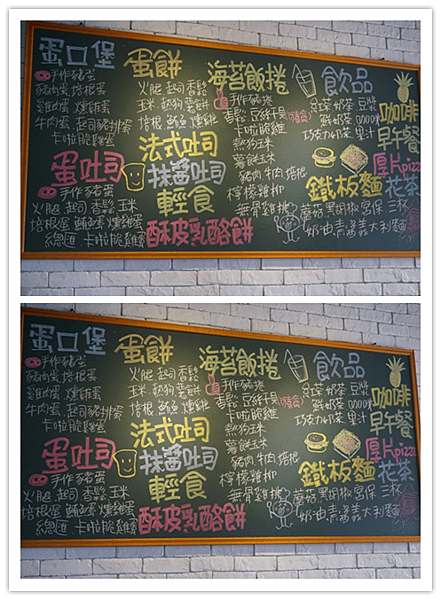 蛋口堡
手作豬蛋
豬肉蛋 培根蛋
雞肉蛋 燻雞蛋
牛肉蛋 起司豬排蛋
卡啦脆雞蛋
蛋吐司
手作豬蛋
火腿 起司 香鬆 玉米
培根蛋 鮪魚蛋 燻雞蛋
總匯 卡啦脆雞蛋
蛋餅
火腿 起司 香鬆
玉米 熱狗 蔥餅
培根 鮪魚 燻雞
法式吐司
抹醬吐司
輕食
酥皮乳酪餅
海苔飯捲
手作豬捲
卡啦脆雞
熱狗玉米
薯餅玉米
豬肉 牛肉 培根
檸檬雞柳
無骨雞排
飲品
紅茶 奶茶 豆漿
鮮奶茶
巧克力奶茶 果汁
鐵板麵
蘑菇 黑胡椒 宮保 三杯
奶油青醬義大利麵
咖啡
早午餐
厚片pizza
花茶
蛋口堡
手作豬蛋
豬肉蛋 培根蛋
雞肉蛋 燻雞蛋
牛肉蛋 起司豬排蛋
卡啦脆雞蛋
蛋吐司
手作豬蛋
火腿 起司 香鬆 玉米
培根蛋 鮪魚蛋 燻雞蛋
總匯 卡啦脆雞蛋
蛋餅
火腿 起司 香鬆
玉米 熱狗 蔥餅
培根 鮪魚 燻雞
法式吐司
抹醬吐司
輕食
酥皮乳酪餅
海苔飯捲
手作豬捲
卡啦脆雞
熱狗玉米
薯餅玉米
豬肉 牛肉 培根
檸檬雞柳
無骨雞排
飲品
紅茶 奶茶 豆漿
鮮奶茶
巧克力奶茶 果汁
鐵板麵
蘑菇 黑胡椒 宮保 三杯
奶油青醬義大利麵
咖啡
早午餐
厚片pizza
花茶